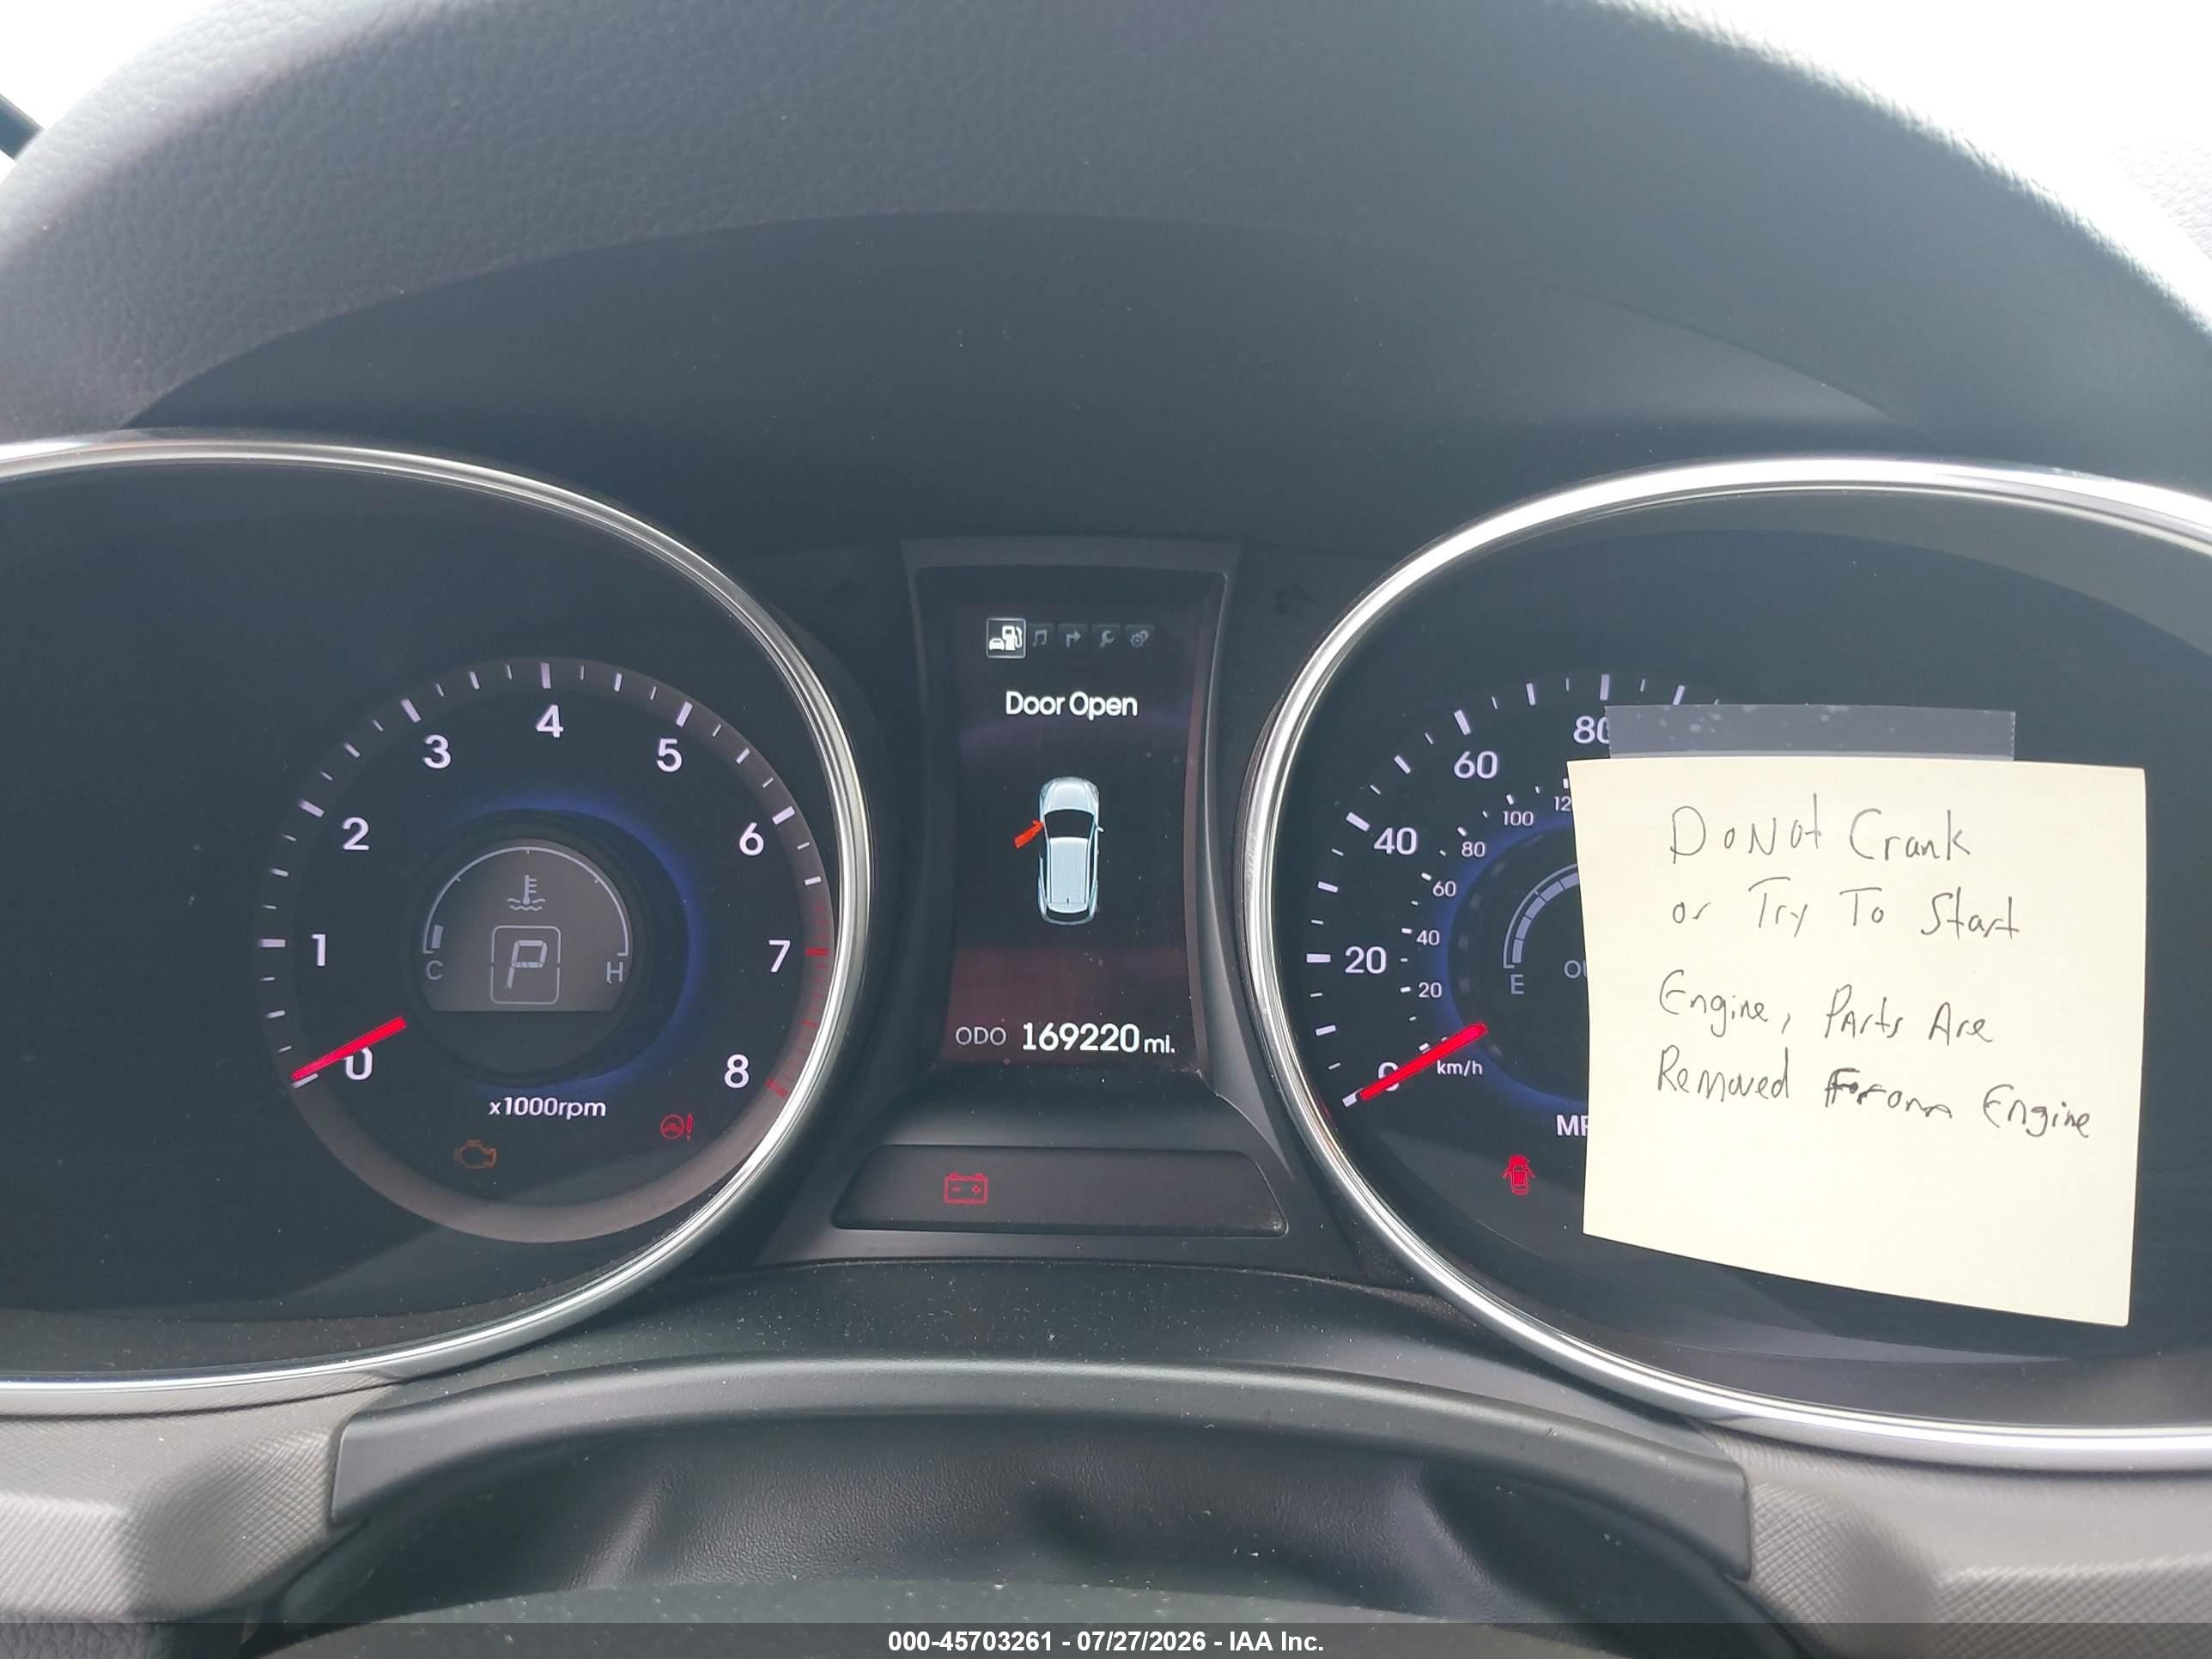 Door Open
ODO 169220 mi.
0 1 2 3 4 5 6 7 8
x1000rpm
C H
P
0 20 40 60 80
20 40 60 80 100
km/h
E
DoNot Crank
or Try To Start
Engine, Parts Are
Removed From Engine
000-45703261 - 07/27/2026 - IAA Inc.